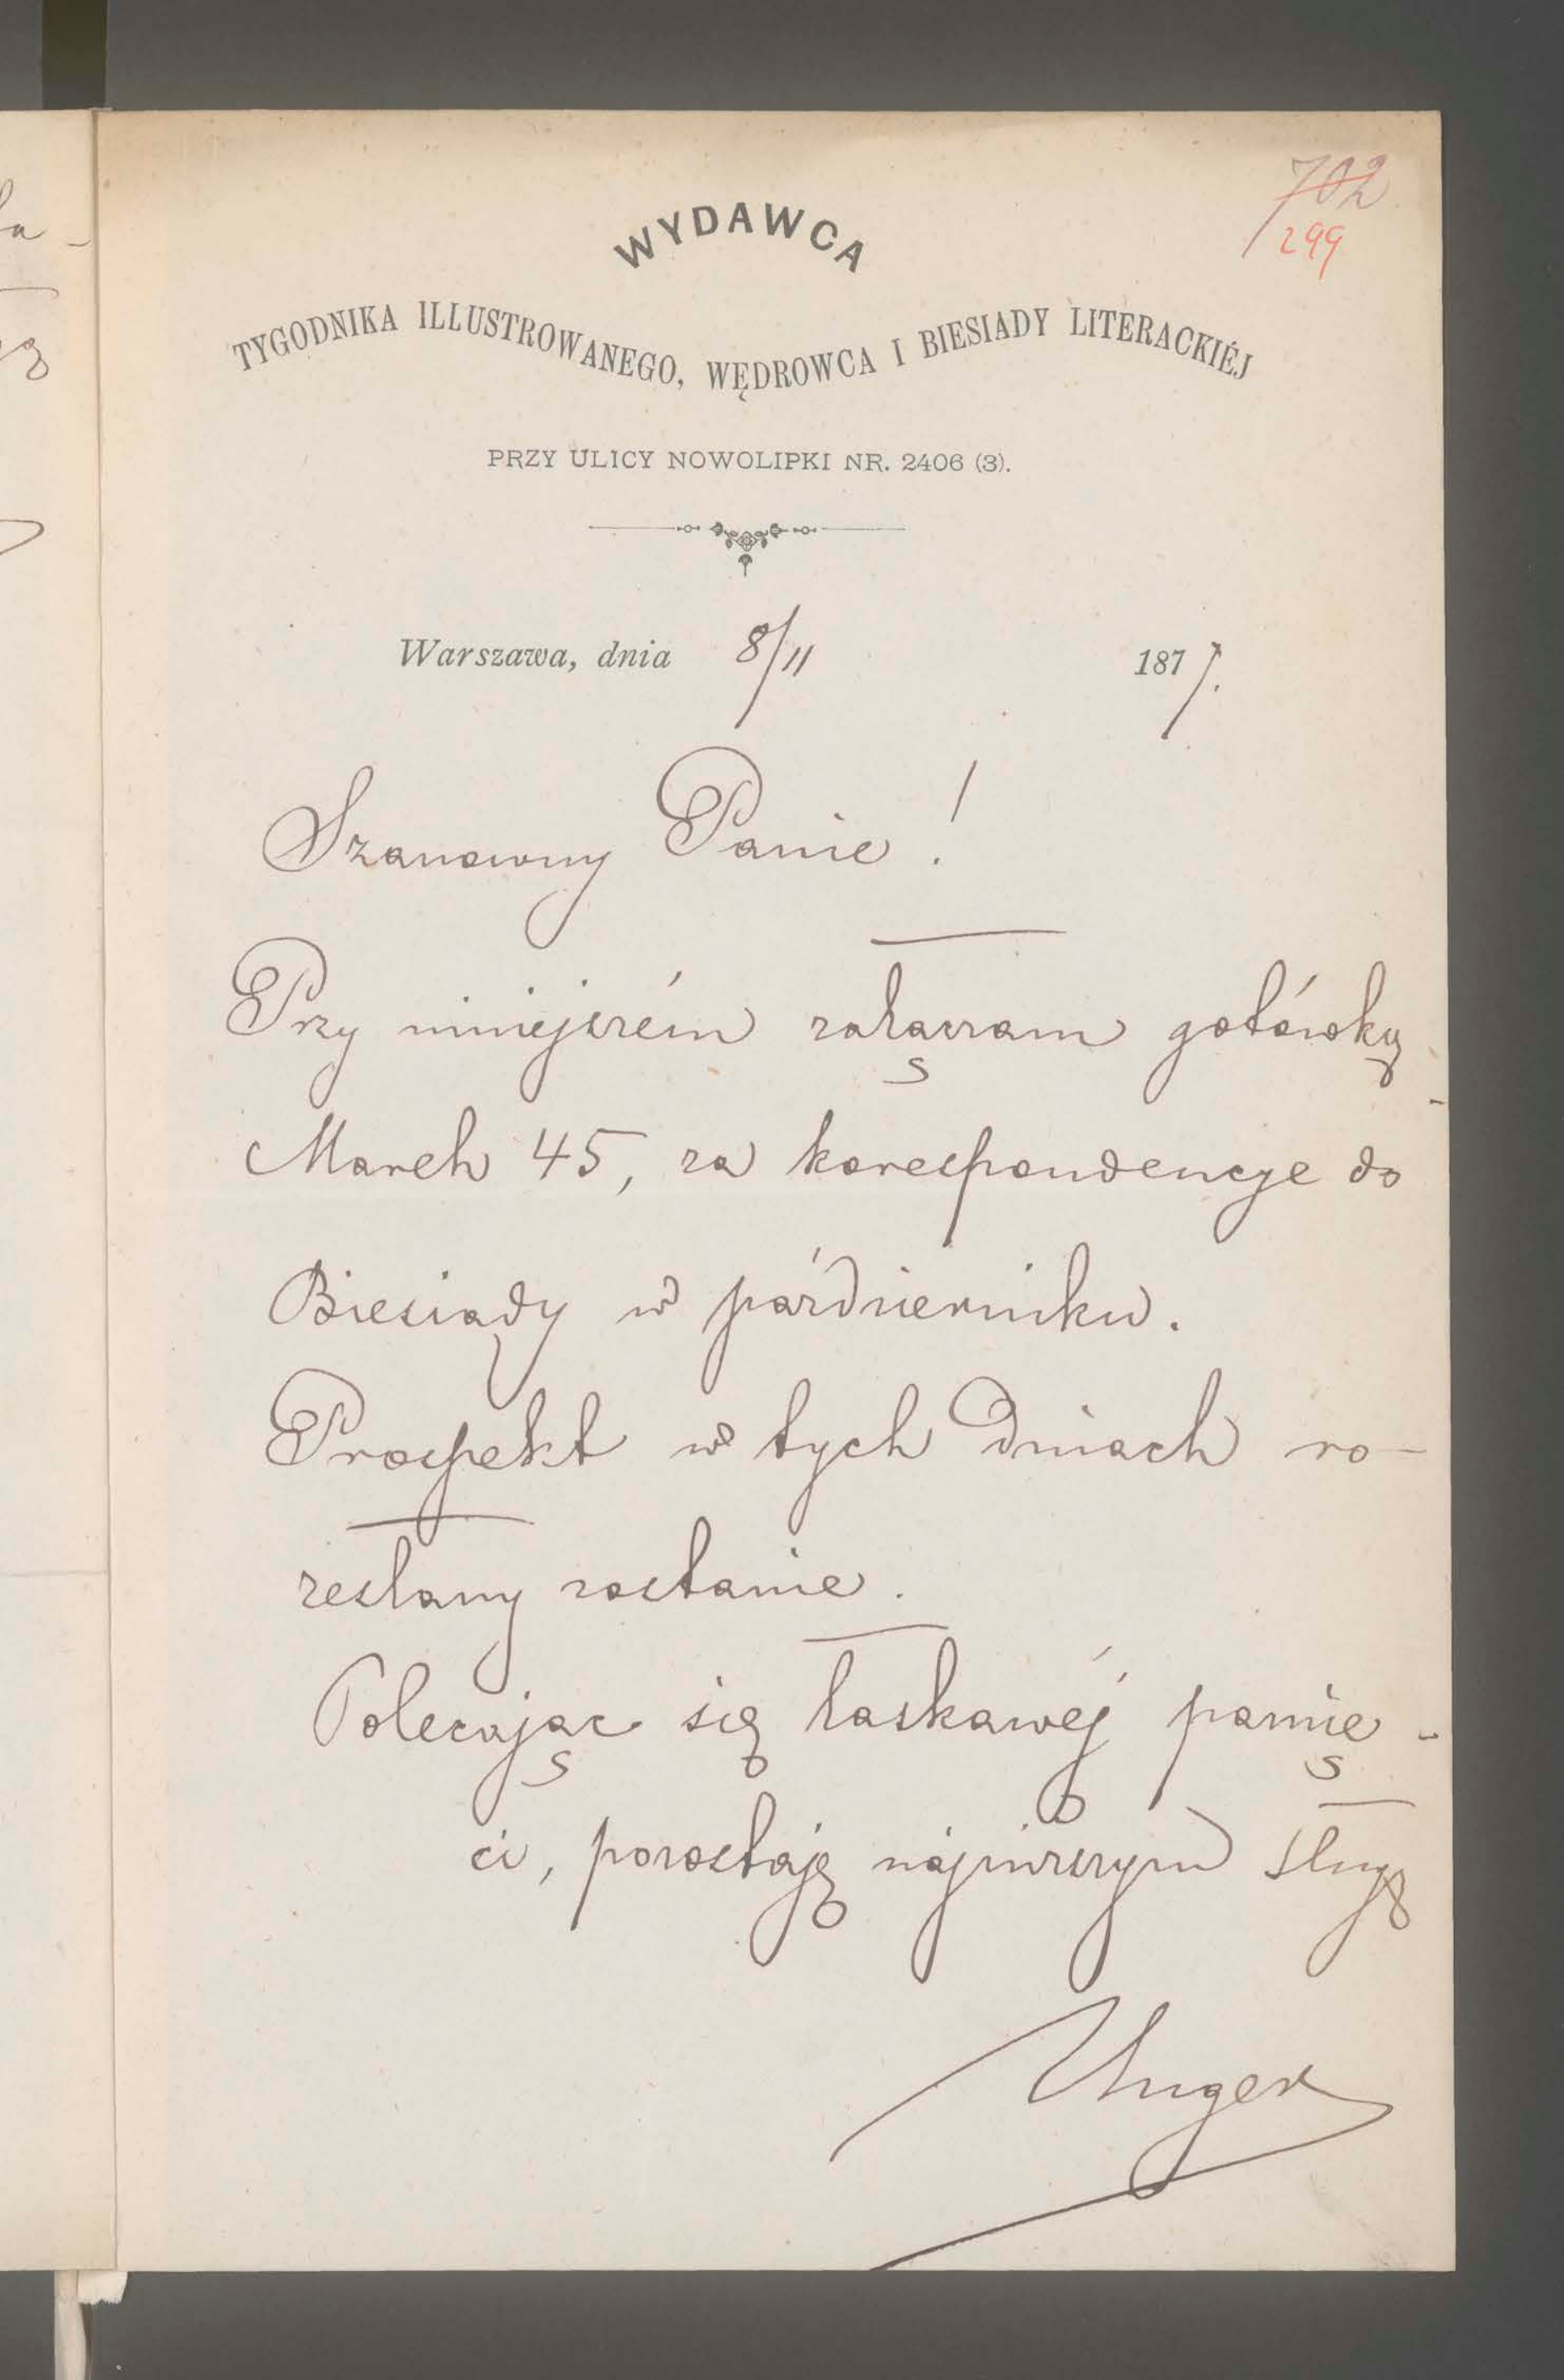 702
299
WYDAWCA
TYGODNIKA ILLUSTROWANEGO, WĘDROWCA I BIESIADY LITERACKIÉJ
PRZY ULICY NOWOLIPKI NR. 2406 (3).
Warszawa, dnia 8/11 1877.
Szanowny Panie!
Przy niniejszém załączam gotówką
March 45, za korespondencje do
Biesiady w październiku.
Prospekt w tych dniach ro-
zesłany zostanie.
Polecając się łaskawéj pamię-
ci, pozostaję najniższym sługą
Unger